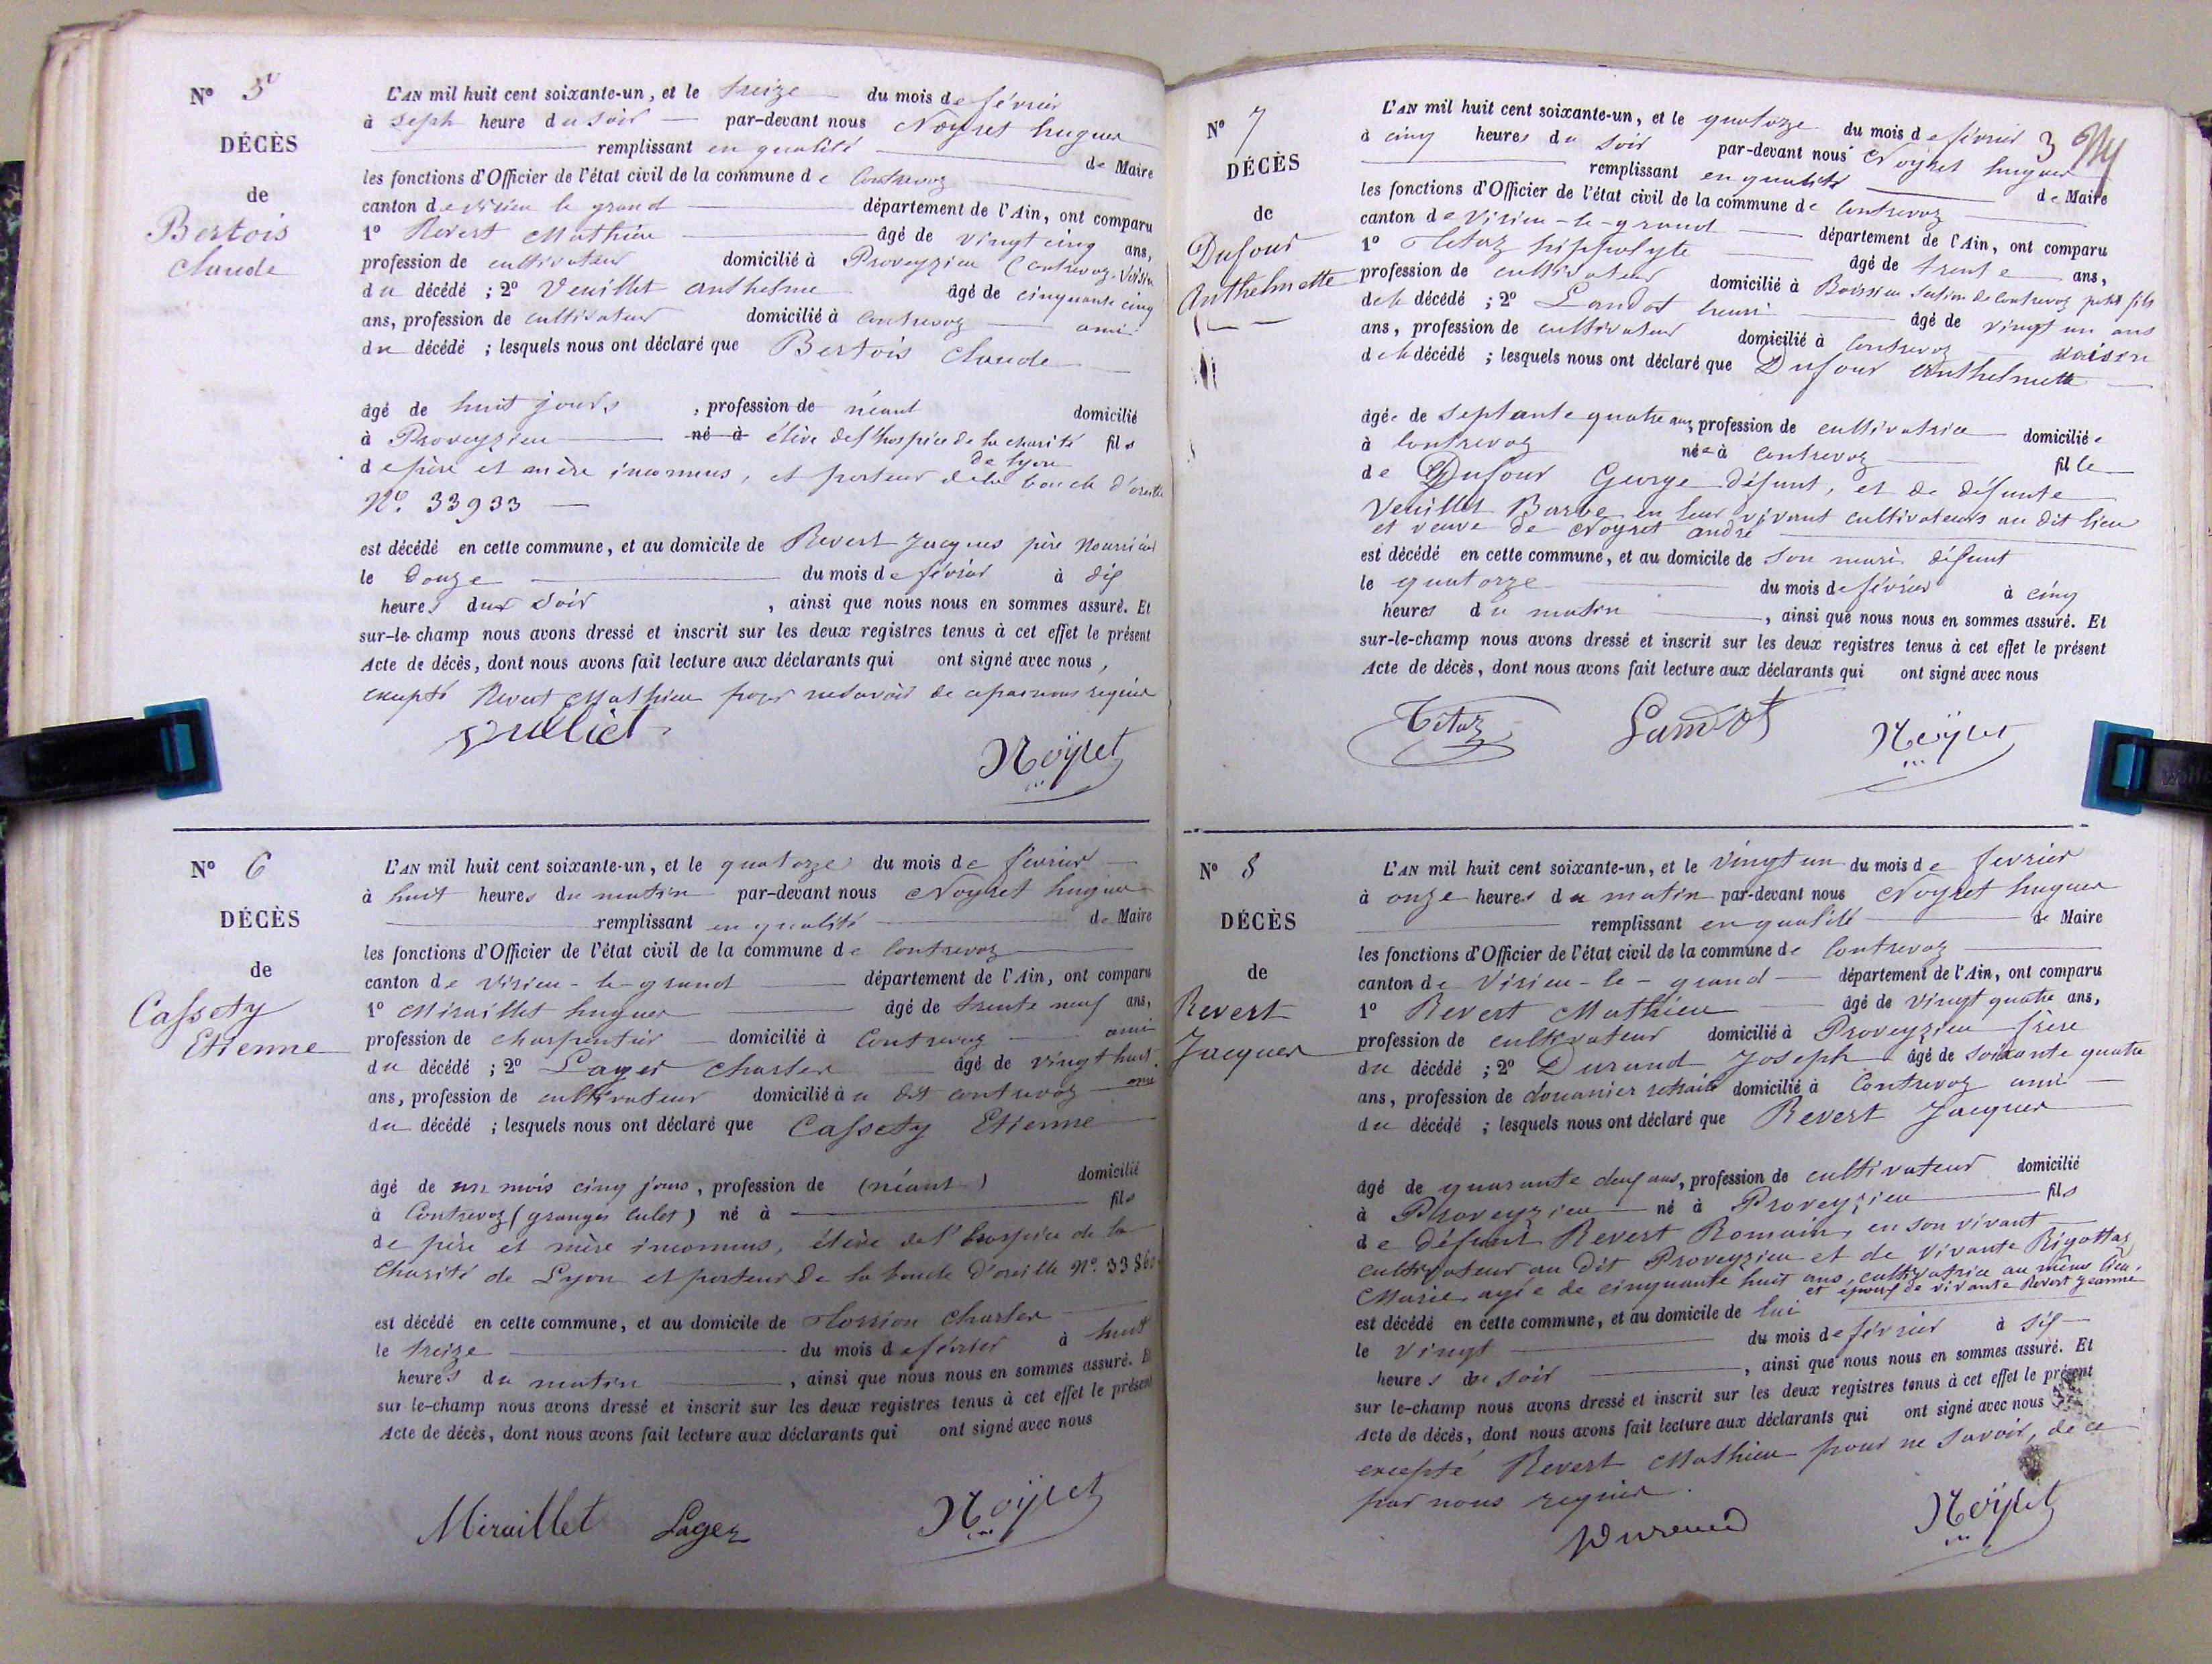 N° 5
DÉCÈS
de
Bertois
Claude
L'AN mil huit cent soixante-un, et le treize du mois de février
à Seph heure du soir par-devant nous Noyret hugues
remplissant en qualité de Maire
les fonctions d'Officier de l'état civil de la commune de Contrevoz
canton de virieu le grand département de l'Ain, ont comparu
1° Revert Mathieu âgé de vingt cinq ans,
profession de cultivateur domicilié à Proveyzieu (Contrevoz. Voisin
du décédé ; 2° Veuillet anthelme âgé de cinquante cinq
ans, profession de cultivateur domicilié à Contrevoz ami
du décédé ; lesquels nous ont déclaré que Bertois Claude
âgé de huit jours, profession de néant domicilié
à Proveyzieu né à élève de l'hospice de la charité fils
de lyon
de père et mère inconnus, et porteur de la boucle d'oreille
N°. 33933
est décédé en cette commune, et au domicile de Revert Jacques père Nourricier
le Douze du mois de février à dix
heures du soir, ainsi que nous nous en sommes assuré. Et
sur-le-champ nous avons dressé et inscrit sur les deux registres tenus à cet effet le présent
Acte de décès, dont nous avons fait lecture aux déclarants qui ont signé avec nous,
excepté Revert Mathieu pour ne savoir de ce par nous requis
Vuilliet
Noÿret
N° 6
DÉCÈS
de
Cassety
Etienne
L'AN mil huit cent soixante-un, et le quatorze du mois de février
à huit heures du matin par-devant nous Noyret hugues
remplissant en qualité de Maire
les fonctions d'Officier de l'état civil de la commune de Contrevoz
canton de virieu-le-grand département de l'Ain, ont comparu
1° Miraillet hugues âgé de trente neuf ans,
profession de charpentier domicilié à Contrevoz ami
du décédé ; 2° Lager Charles âgé de vingt huit
ans, profession de cultivateur domicilié à u dit contrevoz ami
du décédé ; lesquels nous ont déclaré que Cassety Etienne
âgé de un mois cinq jours, profession de (néant) domicilié
à Contrevoz (granges culet) né à fils
de père et mère inconnus, élève de l'hospice de la
Charité de Lyon et porteur de la boucle d'oreille N°. 3386
est décédé en cette commune, et au domicile de Charles
le treize du mois de février à huit
heures du matin, ainsi que nous nous en sommes assuré. Et
sur le-champ nous avons dressé et inscrit sur les deux registres tenus à cet effet le présent
Acte de décès, dont nous avons fait lecture aux déclarants qui ont signé avec nous
Miraillet Lager Noÿret
3
N° 7
DÉCÈS
de
Dufour
Anthelmette
L'AN mil huit cent soixante-un, et le quatorze du mois de février
à cinq heures du soir par-devant nous Noyret hugues
remplissant en qualité de Maire
les fonctions d'Officier de l'état civil de la commune de Contrevoz
canton de Virieu-le-grand département de l'Ain, ont comparu
1° Tétaz hippolyte âgé de trente ans,
profession de cultivateur domicilié à Boissieu section de Contrevoz petit fils
de la décédé ; 2° Landot henri âgé de vingt un ans
ans, profession de cultivateur domicilié à Contrevoz voisin
de la décédé ; lesquels nous ont déclaré que Dufour Anthelmette
âgée de septante quatre ans, profession de cultivatrice domiciliée
à Contrevoz née à Contrevoz fille
de Dufour George défunt, et de défunte
Veuillet Barbe en leur vivant cultivateurs au dit lieu
et veuve de Noyret andré
est décédé en cette commune, et au domicile de son mari défunt
le quatorze du mois de février à cinq
heures du matin, ainsi que nous nous en sommes assuré. Et
sur-le-champ nous avons dressé et inscrit sur les deux registres tenus à cet effet le présent
Acte de décès, dont nous avons fait lecture aux déclarants qui ont signé avec nous
Tétaz Landot Noÿret
N° 8
DÉCÈS
de
Revert
Jacques
L'AN mil huit cent soixante-un, et le vingt un du mois de février
à onze heures du matin par-devant nous Noyret hugues
remplissant en qualité de Maire
les fonctions d'Officier de l'état civil de la commune de Contrevoz
canton de Virieu-le-grand département de l'Ain, ont comparu
1° Revert Mathieu âgé de vingt quatre ans,
profession de cultivateur domicilié à Proveyzieu frère
du décédé ; 2° Durand Joseph âgé de soixante quatre
ans, profession de douanier retraité domicilié à Contrevoz ami
du décédé ; lesquels nous ont déclaré que Revert Jacques
âgé de quarante deux ans, profession de cultivateur domicilié
à Proveyzieu né à Proveyzieu fils
de défunt Revert Romain, en son vivant
cultivateur au dit Proveyzieu et de vivante Rigottaz
Marie, agée de cinquante huit ans, cultivatrice au même lieu.
et époux de vivante Revert Jeanne
est décédé en cette commune, et au domicile de lui
le vingt du mois de février à six
heures du soir, ainsi que nous nous en sommes assuré. Et
sur le-champ nous avons dressé et inscrit sur les deux registres tenus à cet effet le présent
Acte de décès, dont nous avons fait lecture aux déclarants qui ont signé avec nous
excepté Revert Mathieu pour ne savoir, de ce
par nous requis.
Durand Noÿret